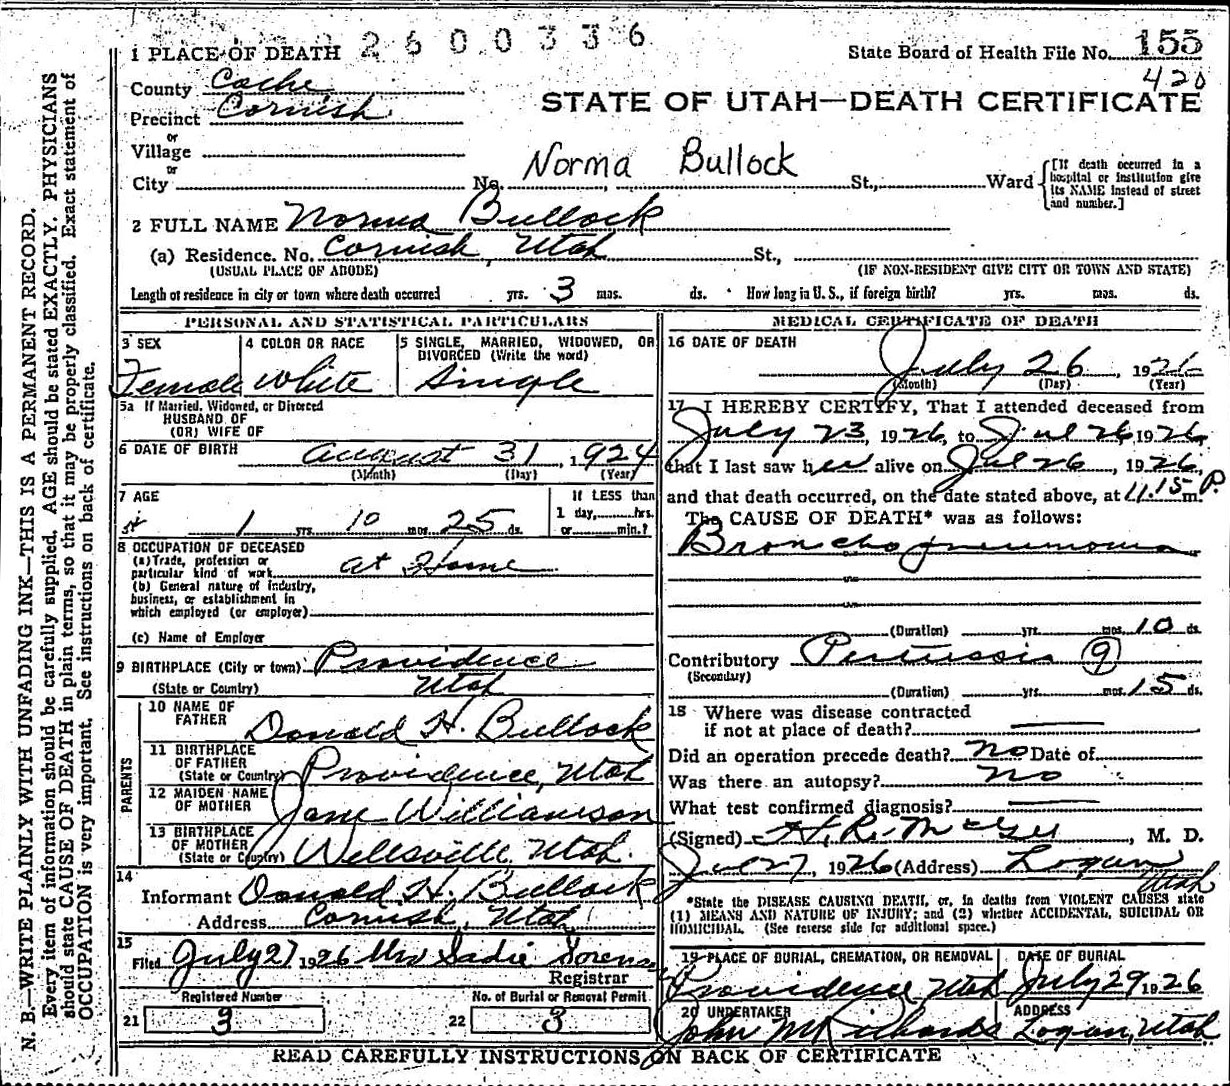 2600336
1 PLACE OF DEATH
State Board of Health File No. 155
420
County Cache
Precinct Cornish
STATE OF UTAH—DEATH CERTIFICATE
or
Village
or
City No. Norma Bullock St., Ward [If death occurred in a hospital or institution give its NAME instead of street and number.]
2 FULL NAME Norma Bullock
(a) Residence. No. Cornish, Utah St.,
(USUAL PLACE OF ABODE) (IF NON-RESIDENT GIVE CITY OR TOWN AND STATE)
Length of residence in city or town where death occurred yrs. 3 mos. ds. How long in U. S., if foreign birth? yrs. mos. ds.
PERSONAL AND STATISTICAL PARTICULARS
3 SEX
Female
4 COLOR OR RACE
White
5 SINGLE, MARRIED, WIDOWED, OR
DIVORCED (Write the word)
Single
5a If Married, Widowed, or Divorced
HUSBAND OF
(OR) WIFE OF
6 DATE OF BIRTH August 31, 1924
(Month) (Day) (Year)
7 AGE
1 yrs. 10 mos. 25 ds.
If LESS than
1 day,......hrs.
or......min.?
8 OCCUPATION OF DECEASED
(a) Trade, profession or
particular kind of work at Home
(b) General nature of industry,
business, or establishment in
which employed (or employer)
(c) Name of Employer
9 BIRTHPLACE (City or town) Providence
(State or Country) Utah
PARENTS
10 NAME OF
FATHER Donald H. Bullock
11 BIRTHPLACE
OF FATHER
(State or Country) Providence, Utah
12 MAIDEN NAME
OF MOTHER Jane Williamson
13 BIRTHPLACE
OF MOTHER
(State or Country) Wellsville, Utah.
14
Informant Donald H. Bullock
Address Cornish, Utah
15
Filed July 27 1926 Mrs Sadie
Registrar
Registered Number
21 3
No. of Burial or Removal Permit
22 3
MEDICAL CERTIFICATE OF DEATH
16 DATE OF DEATH
July 26, 1926
(Month) (Day) (Year)
17 I HEREBY CERTIFY, That I attended deceased from
July 23, 1926, to Jul 26 1926,
that I last saw her alive on Jul 26, 1926,
and that death occurred, on the date stated above, at 11.15 P.m.
The CAUSE OF DEATH* was as follows:
Broncho pneumonia
(Duration) yrs. mos. 10 ds.
Contributory Pertussis 9
(Secondary)
(Duration) yrs. mos. 15 ds.
18 Where was disease contracted
if not at place of death?
Did an operation precede death? no Date of
Was there an autopsy? no
What test confirmed diagnosis?
(Signed) H. R. McGee, M. D.
Jul 27, 1926 (Address) Logan
Utah
*State the DISEASE CAUSING DEATH, or, in deaths from VIOLENT CAUSES state
(1) MEANS AND NATURE OF INJURY; and (2) whether ACCIDENTAL, SUICIDAL OR
HOMICIDAL. (See reverse side for additional space.)
19 PLACE OF BURIAL, CREMATION, OR REMOVAL
Providence Utah
DATE OF BURIAL
July 29 1926
20 UNDERTAKER
John M Richards
ADDRESS
Logan, Utah
READ CAREFULLY INSTRUCTIONS ON BACK OF CERTIFICATE
N. B.—WRITE PLAINLY WITH UNFADING INK—THIS IS A PERMANENT RECORD.
Every item of information should be carefully supplied. AGE should be stated EXACTLY. PHYSICIANS
should state CAUSE OF DEATH in plain terms, so that it may be properly classified. Exact statement of
OCCUPATION is very important. See instructions on back of certificate.